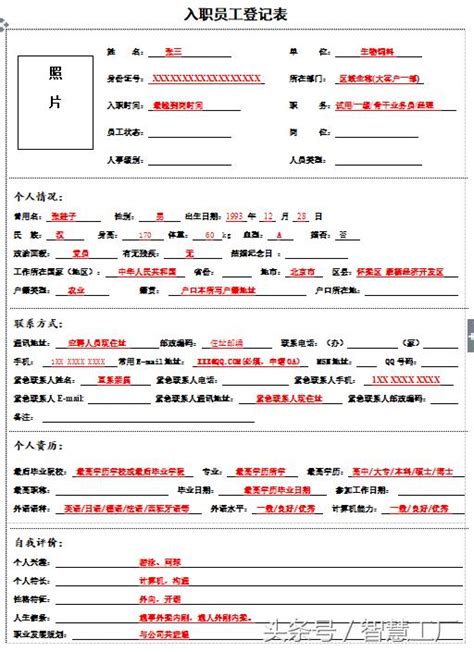 入职员工登记表
照片
姓 名：张三 单 位：生物饲料
身份证号：XXXXXXXXXXXXXXXXXX 所在部门：区域金称(大客户一部)
入职时间：最终到岗时间 职 务：试用/一级/骨干业务员/经理
员工状态： 岗 位：
人事级别： 人员类型：
个人情况：
曾用名：张娃子 性别：男 出生日期：1993 年 12 月 28 日
民 族：汉 身高：170 体重：60 kg 血型：A 婚否：否
政治面貌：党员 有无残疾：无 结婚纪念日：
工作所在国家（地区）：中华人民共和国 省份： 地市：北京市 区县：怀柔区 雁栖经济开发区
户籍类型：农业 籍贯：户口本所写户籍地址 户口所在地：
联系方式：
通讯地址：应聘人员现住址 邮政编码：住址邮编 联系电话：（办） （家）
手机：1XX XXXX XXXX 常用E-mail地址：XXX@QQ.COM(必须，申请OA) MSN地址： QQ号码：
紧急联系人姓名：直系亲属 紧急联系人电话： 紧急联系人手机：1XX XXXX XXXX
紧急联系人E-mail: 紧急联系人通讯地址：紧急联系人现住址 紧急联系人邮政编码：
备注：
个人资历：
最后毕业院校：最高学历学校或最后毕业学院 专业：最高学历所学 最高学历：高中/大专/本科/硕士/博士
最高职称： 毕业日期：最高学历毕业日期 参加工作日期：
外语语种：英语/日语/德语/法语/西班牙语等 外语水平：一般/良好/优秀 计算机能力：一般/良好/优秀
自我评价：
个人兴趣：游泳、网球
个人特长：计算机，沟通
性格特征：外向，开朗
人生信条：遇事外柔内刚，遇人外刚内柔。
职业发展规划：与公司共进退
头条号/智慧工厂